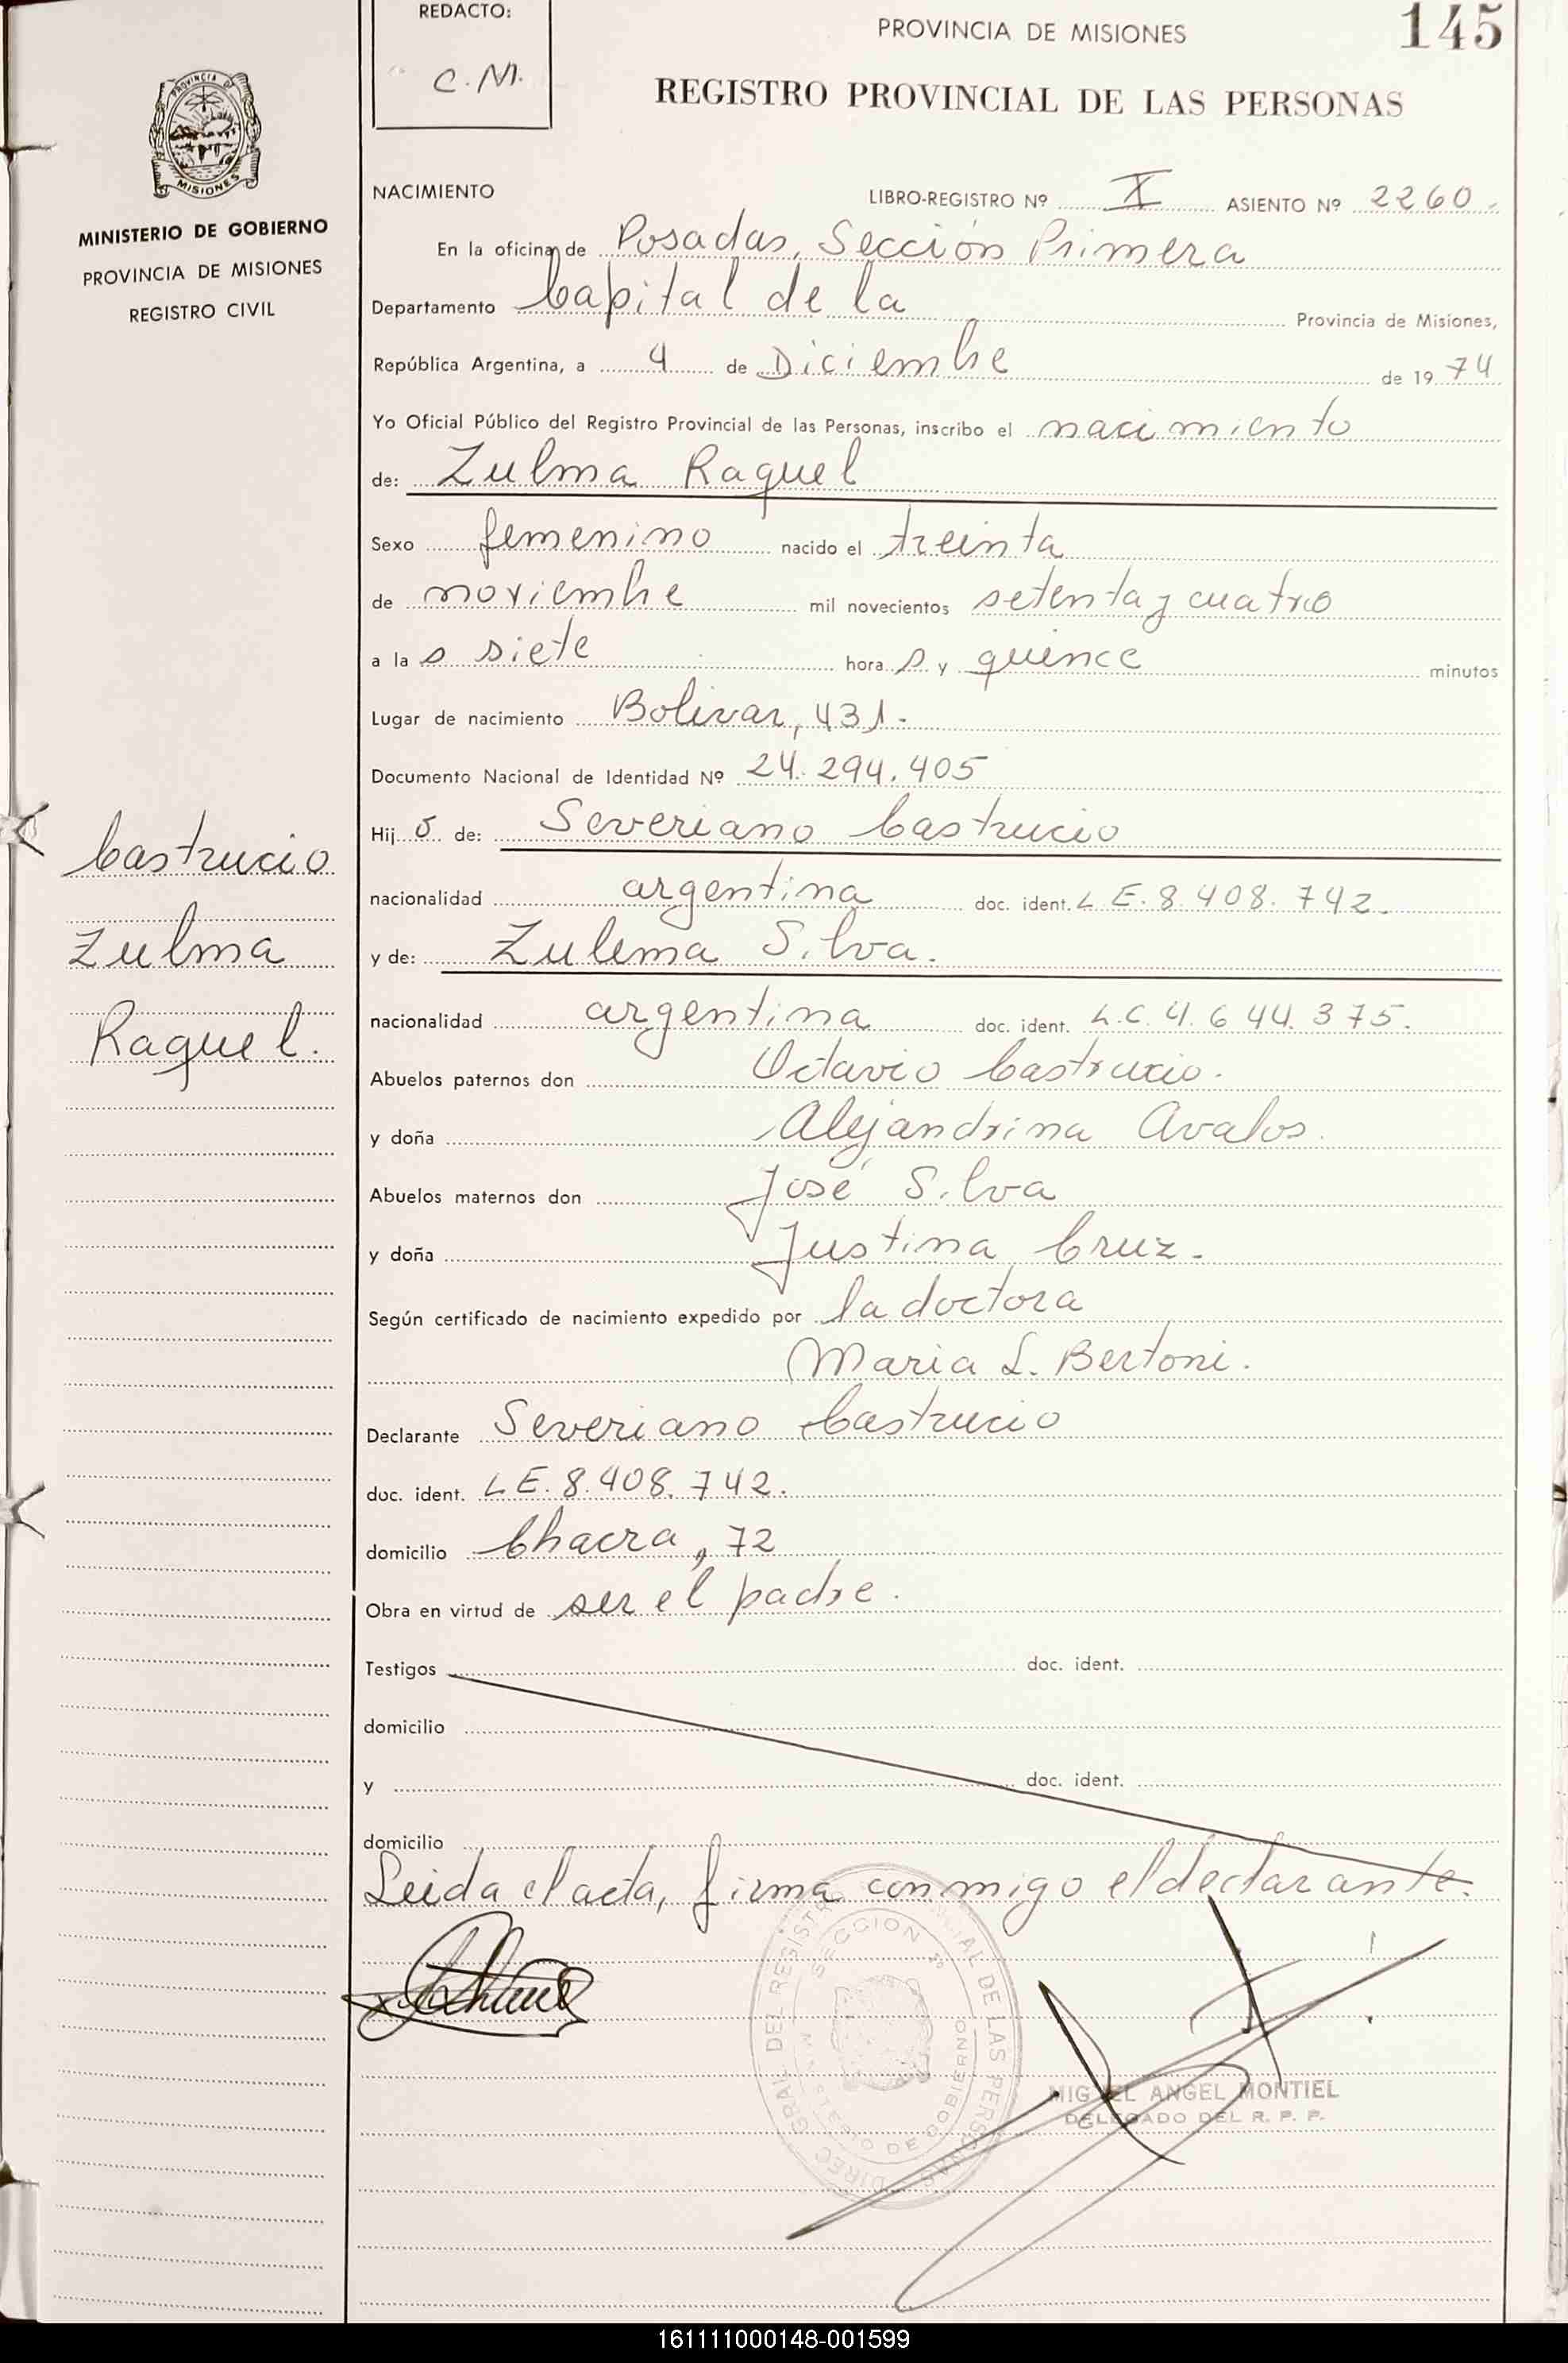 REDACTO:
C.M.
PROVINCIA DE MISIONES
145
REGISTRO PROVINCIAL DE LAS PERSONAS
PROVINCIA DE
MISIONES
MINISTERIO DE GOBIERNO
PROVINCIA DE MISIONES
REGISTRO CIVIL
NACIMIENTO LIBRO-REGISTRO Nº X ASIENTO Nº 2260.
En la oficina de Posadas, Sección Primera
Departamento Capital de la Provincia de Misiones,
República Argentina, a 4 de Diciembre de 1974
Yo Oficial Público del Registro Provincial de las Personas, inscribo el nacimiento
de: Zulma Raquel
Sexo femenino nacido el treinta
de noviembre mil novecientos setenta y cuatro
a las siete horas y quince minutos
Lugar de nacimiento Bolivar, 431.
Documento Nacional de Identidad Nº 24.294.405
Hij de: Severiano Castrucio
Castrucio
Zulma
Raquel.
nacionalidad argentina doc. ident. L.E. 8.408.742.
y de: Zulema Silva.
nacionalidad argentina doc. ident. L.C. 4.644.375.
Abuelos paternos don Octavio Castrucio.
y doña Alejandrina Avalos.
Abuelos maternos don José Silva
y doña Justina Cruz.
Según certificado de nacimiento expedido por la doctora
Maria L. Bertoni.
Declarante Severiano Castrucio
doc. ident. L.E. 8.408.742.
domicilio Chacra, 72
Obra en virtud de ser el padre.
Testigos doc. ident.
domicilio
y doc. ident.
domicilio
Leida el acta, firma conmigo el declarante.
SECCION 1º
MINISTERIO DE GOBIERNO
MIGUEL ANGEL MONTIEL
DELEGADO DEL R. P. P.
161111000148-001599